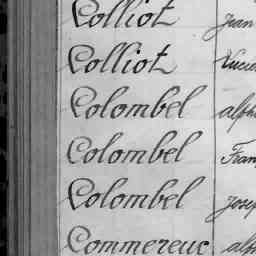 Colliot Jean
Colliot Lucie
Colombel alph
Colombel Fran
Colombel Josep
Commereuc alph